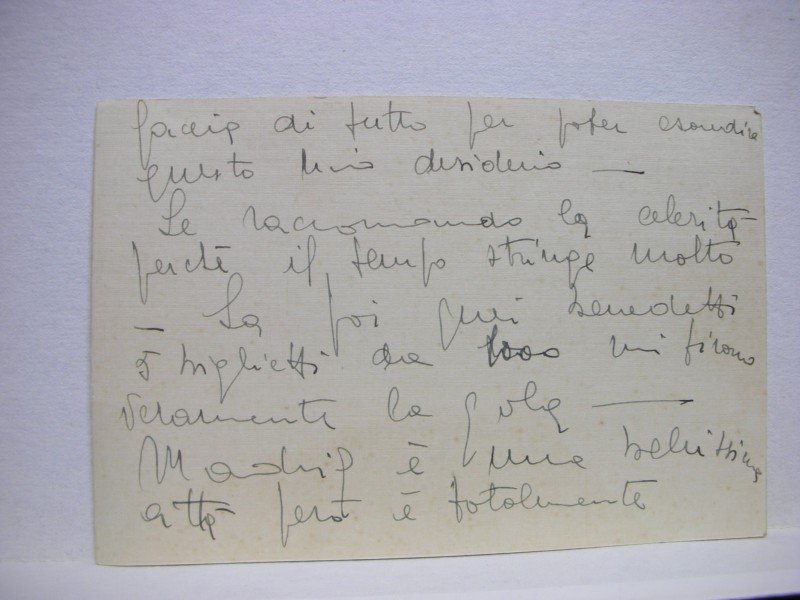 faccia di tutto per poter esaudire
questo mio desiderio —
Le raccomando la celerità
perchè il tempo stringe molto
— Sa poi quei benedetti
5 biglietti da 1000 mi tirono
veramente la gola —
Madrid è una bellissima
città però è totalmente